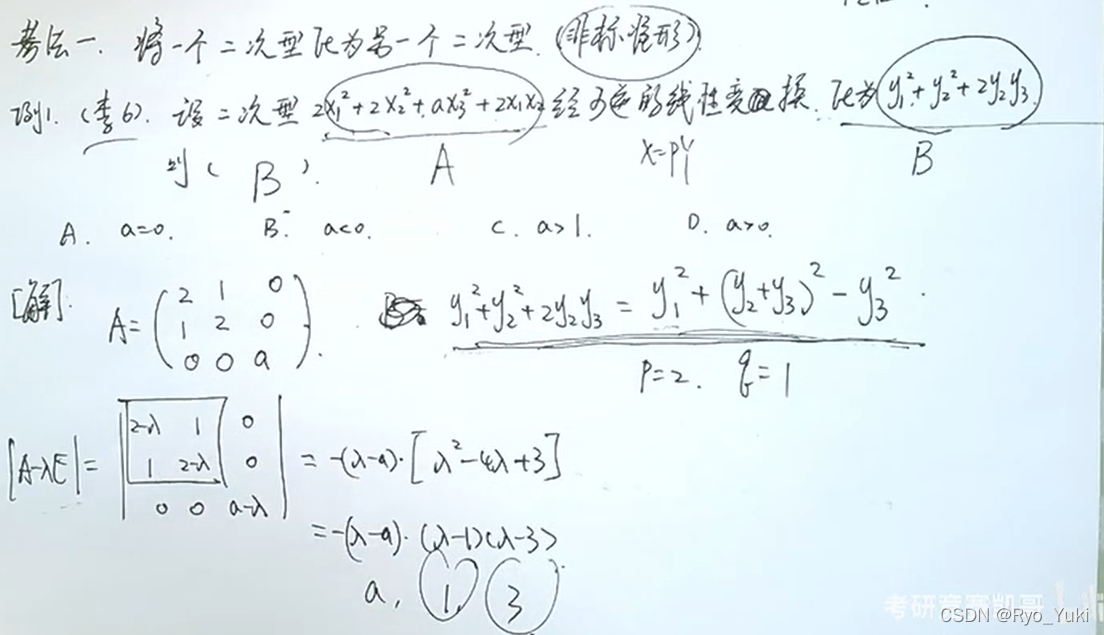 考法一. 将一个二次型化为另一个二次型. (非标准形)
例1. (李6). 设二次型 2x₁²+2x₂²+ax₃²+2x₁x₂ 经可逆的线性变换. 化为 y₁²+y₂²+2y₂y₃.
A X=PY B
则( B ).
A. a=0. B. a<0. C. a>1. D. a>0.
[解]. A= ( 2 1 0
1 2 0
0 0 a ).
y₁²+y₂²+2y₂y₃ = y₁²+(y₂+y₃)²-y₃².
P=2. q=1
|A-λE|= | 2-λ 1 0
1 2-λ 0
0 0 a-λ | = -(λ-a)·[λ²-4λ+3]
=-(λ-a)·(λ-1)(λ-3).
a, 1, 3
考研竞赛凯哥
CSDN @Ryo_Yuki